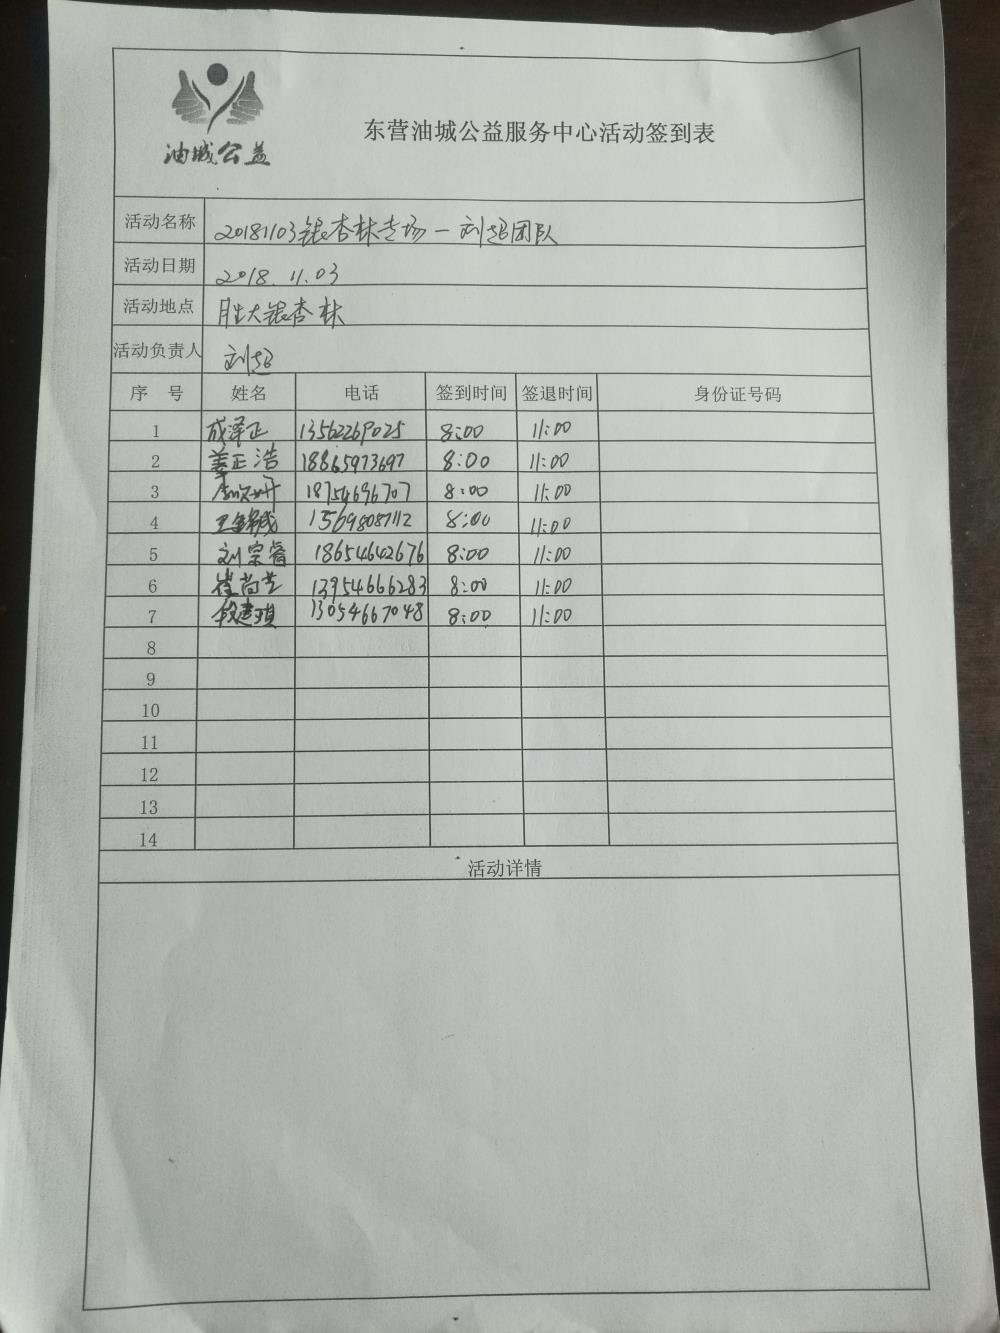 油城公益
东营油城公益服务中心活动签到表
活动名称 20181103银杏林专场—刘超团队
活动日期 2018.11.03
活动地点 胜大银杏林
活动负责人 刘超
序号 姓名 电话 签到时间 签退时间 身份证号码
1 成泽正 13562269025 8:00 11:00
2 姜正浩 18865973697 8:00 11:00
3 18754696707 8:00 11:00
4 15698087112 8:00 11:00
5 刘宗睿 18654642676 8:00 11:00
6 崔尚芝 13954666283 8:00 11:00
7 段建琪 13054667048 8:00 11:00
8
9
10
11
12
13
14
活动详情